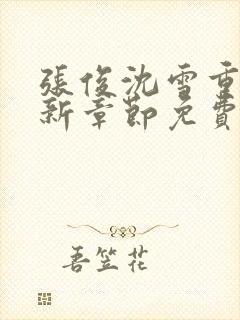 張俊沈雪重
新章節免費
吾笠花